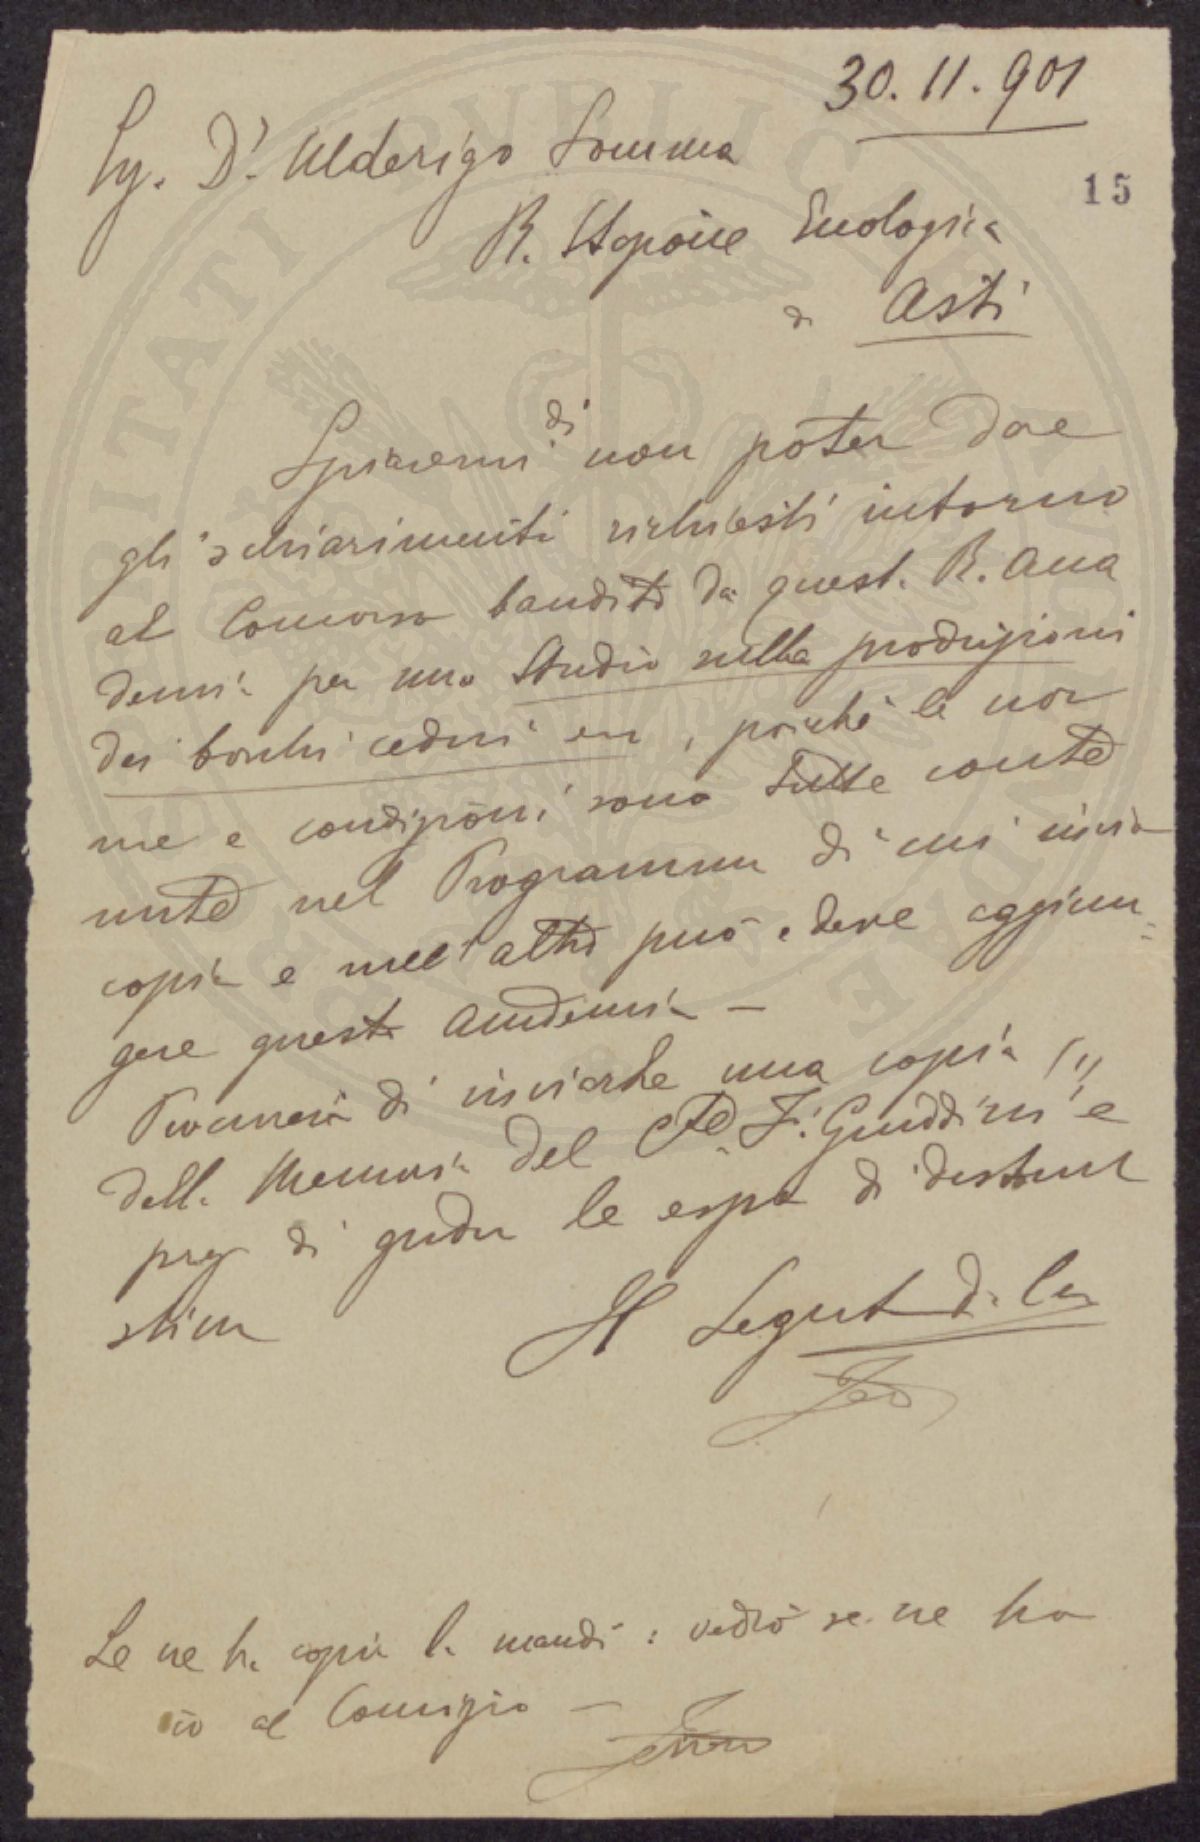 30.11.901
15
Sig. Dr. Ulderigo Somma
R. Stazione Enologica
di Asti
Spiacemi di non poter dare
gli schiarimenti richiesti intorno
al Concorso bandito da quest. R. Acca
demia per uno Studio sulla produzioni
dei boschi cedui ecc, poichè le nor
me e condizioni sono tutte conte
nute nel Programma di cui invio
copia e null'altro può e deve aggiun=
gere questa Accademia —
Procurerò di inviarle una copia
della Memoria del F. Guiddini e
prego di gradire le espr di distint
stima
Il Segret di
Se ne ha copia la mandi: vedrò se ne ho
io al Comizio —